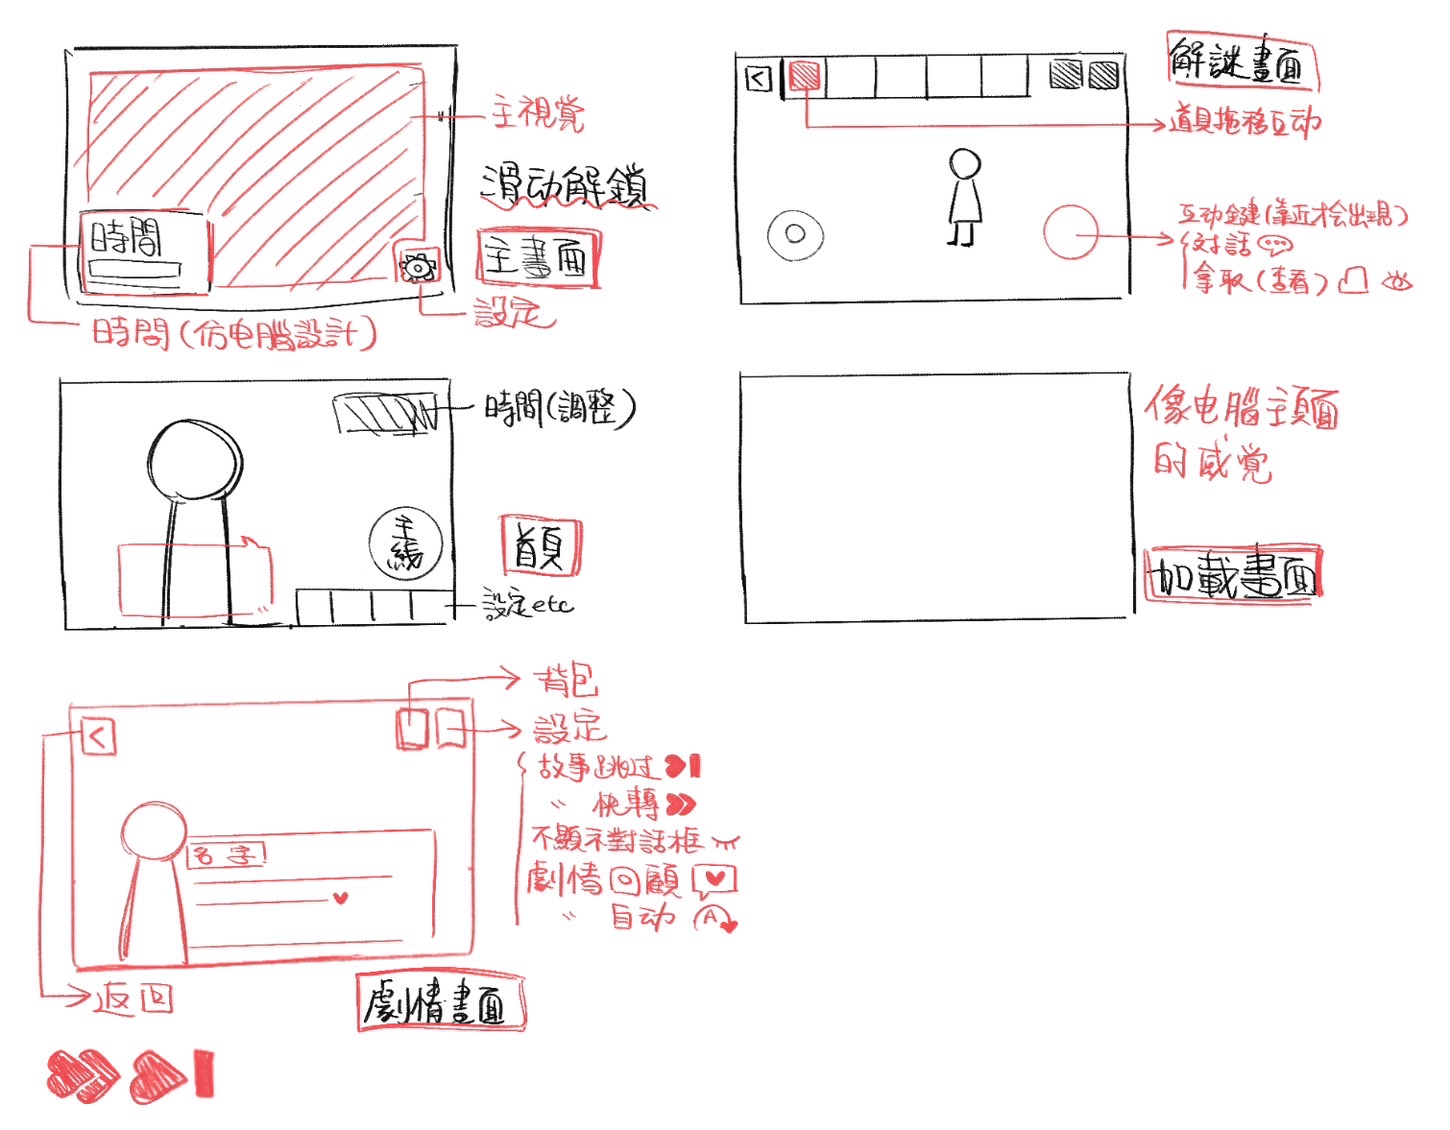 主視覚
滑动解鎖
時間
主畫面
設定
時間(仿电腦設計)
解謎畫面
道具拖移互动
互动鍵(靠近才会出現)
对話
拿取(查看)
時間(調整)
主線
首頁
設定etc
像电腦主頁面
的感覚
加載畫面
背包
設定
故事跳过
〃 快轉
不顯示對話框
劇情回顧
〃 自动 A
名字
返回
劇情畫面